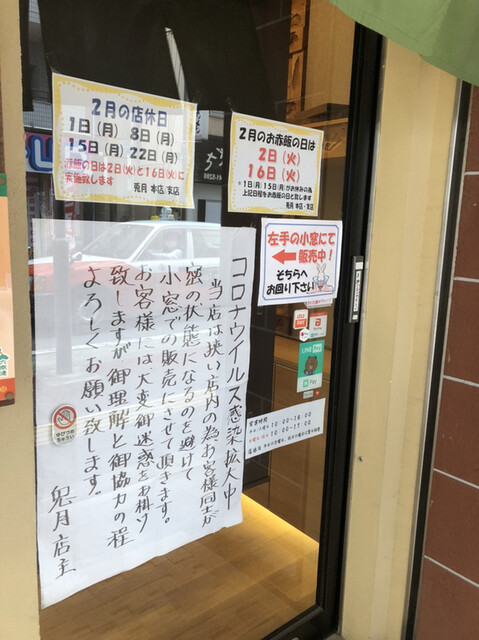 2月の店休日
1日(月) 8日(月)
15日(月) 22日(月)
赤飯の日は2日(火)と16日(火)に
実施致します
兎月 本店/支店
2月のお赤飯の日は
2日(火)
16日(火)
※1日(月)15日(月)がお休みの為
上記日程をお赤飯の日と致します
兎月 本店/支店
左手の小窓にて
販売中!
そちらへ
お回り下さい
コロナウイルス感染拡大中
当店は狭い店内の為お客様同士が
密の状態になるのを避けて
小窓での販売にさせて頂きます。
お客様には大変御迷惑をお掛け
致しますが御理解と御協力の程
よろしくお願い致します。
兎月 店主
LINE
Pay
Pay
営業時間
10:00-18:00
10:00-17:00